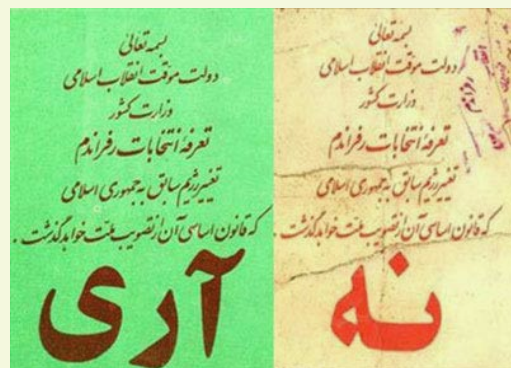 بسمه تعالی
دولت موقت انقلاب اسلامی
وزارت کشور
تعرفهٔ انتخابات رفراندم
تغییر رژیم سابق به جمهوری اسلامی
که قانون اساسی آن از تصویب ملت خواهد گذشت .
نه
بسمه تعالی
دولت موقت انقلاب اسلامی
وزارت کشور
تعرفهٔ انتخابات رفراندم
تغییر رژیم سابق به جمهوری اسلامی
که قانون اساسی آن از تصویب ملت خواهد گذشت .
آری